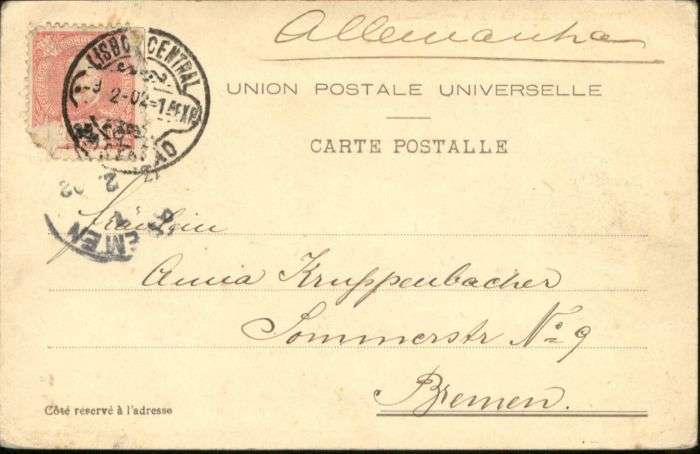 Allemanha
LISBOA CENTRAL
9 2-02
UNION POSTALE UNIVERSELLE
CARTE POSTALLE
2. 02
BREMEN
Fräulein
Anna Kruppenbacher
Sommerstr No 9
Bremen.
Côté réservé à l'adresse